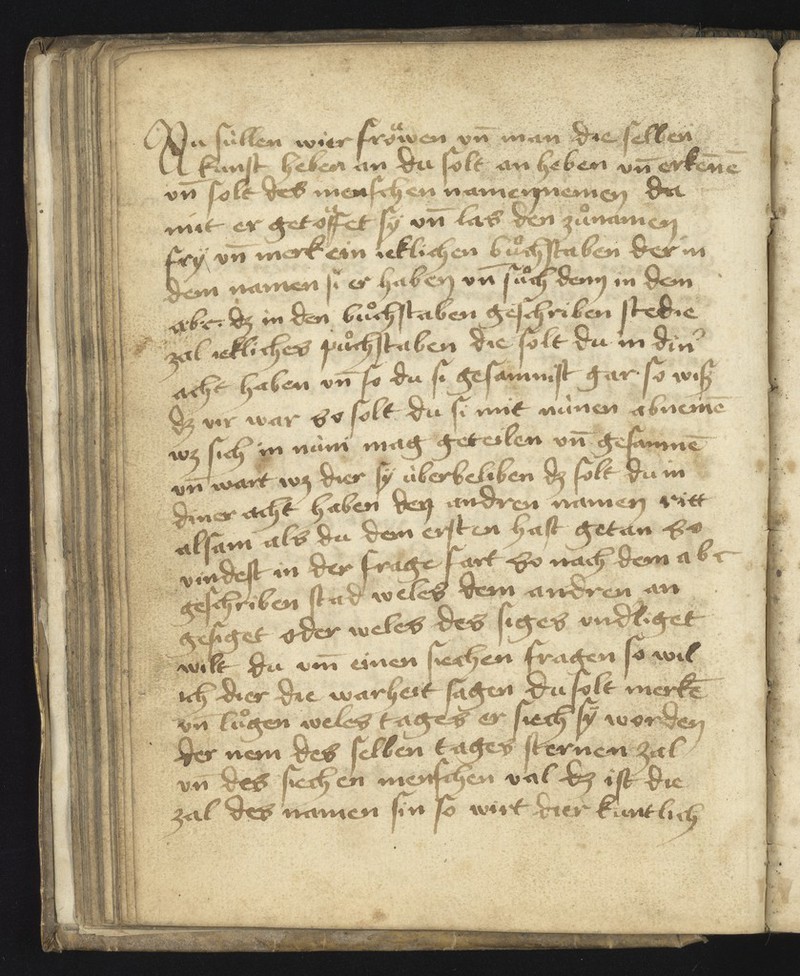 Nu süllen wier fröwen vn̄ man die selben
kunst heben an du solt an heben vn̄ erkēnē
vn̄ solt des menschen namen nemen da
mit er getöffet sÿ vn̄ las den zůnamen
frÿ vn̄ merk ein ieklichen bůchstaben der in
dem namen si er haben vn̄ sůch denn in dem
abc. dz in den bůchstaben geschriben ste die
zal iekliches půchstaben die solt du in din᾽
acht haben vn̄ so du si gesamnist gar so wiß
dz vir war so solt du si mit nünen abnemē
wz sich in nüni mag geteilen vn̄ gesamnē
vn̄ wart wz dier sÿ überbeliben dz solt du in
diner acht haben den andren namen ritt
alsam als du dem ersten hast getan so
vindest in der frage fart so nach dem abc
geschriben stad weles dem andren an
gesiget oder weles des siges vndliget
wilt du vm̄ einen siechen fragen so wil
ich dier die warheit sagen du solt merkē
vn lůgen weles tages er siech sÿ worden
der nem des selben tages sternen zal
vn des siechen menschen val dz ist die
zal des namen sin so wirt dier kuntlich